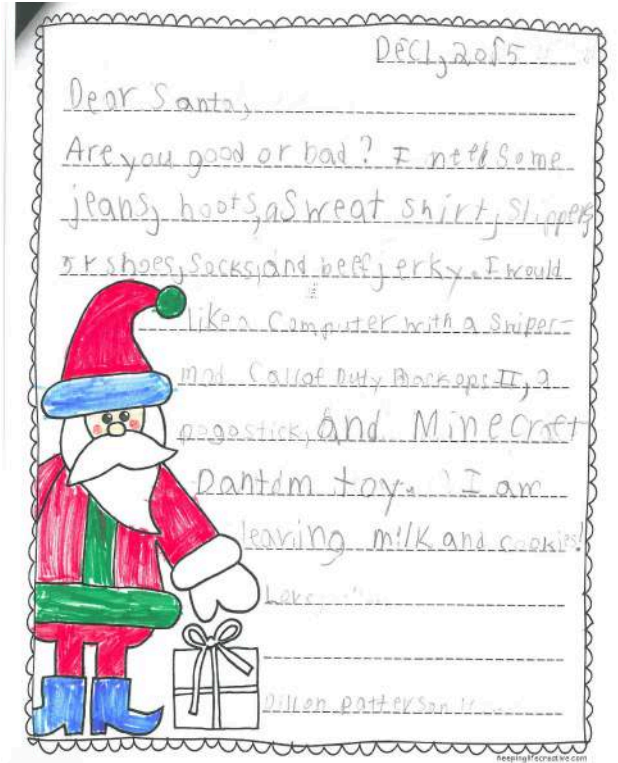 Dec 1, 2015
Dear Santa,
Are you good or bad? I need some
jeans, boots, a sweat shirt, slippers
or shoes, socks, and beef jerky. I would
like a Computer with a Sniper-
Call of Duty Black ops II, a
pogo stick, and Minecraft
Dantdm toy. I am
leaving milk and cookies!
Love,
Dillon Patterson
keepinglifecreative.com